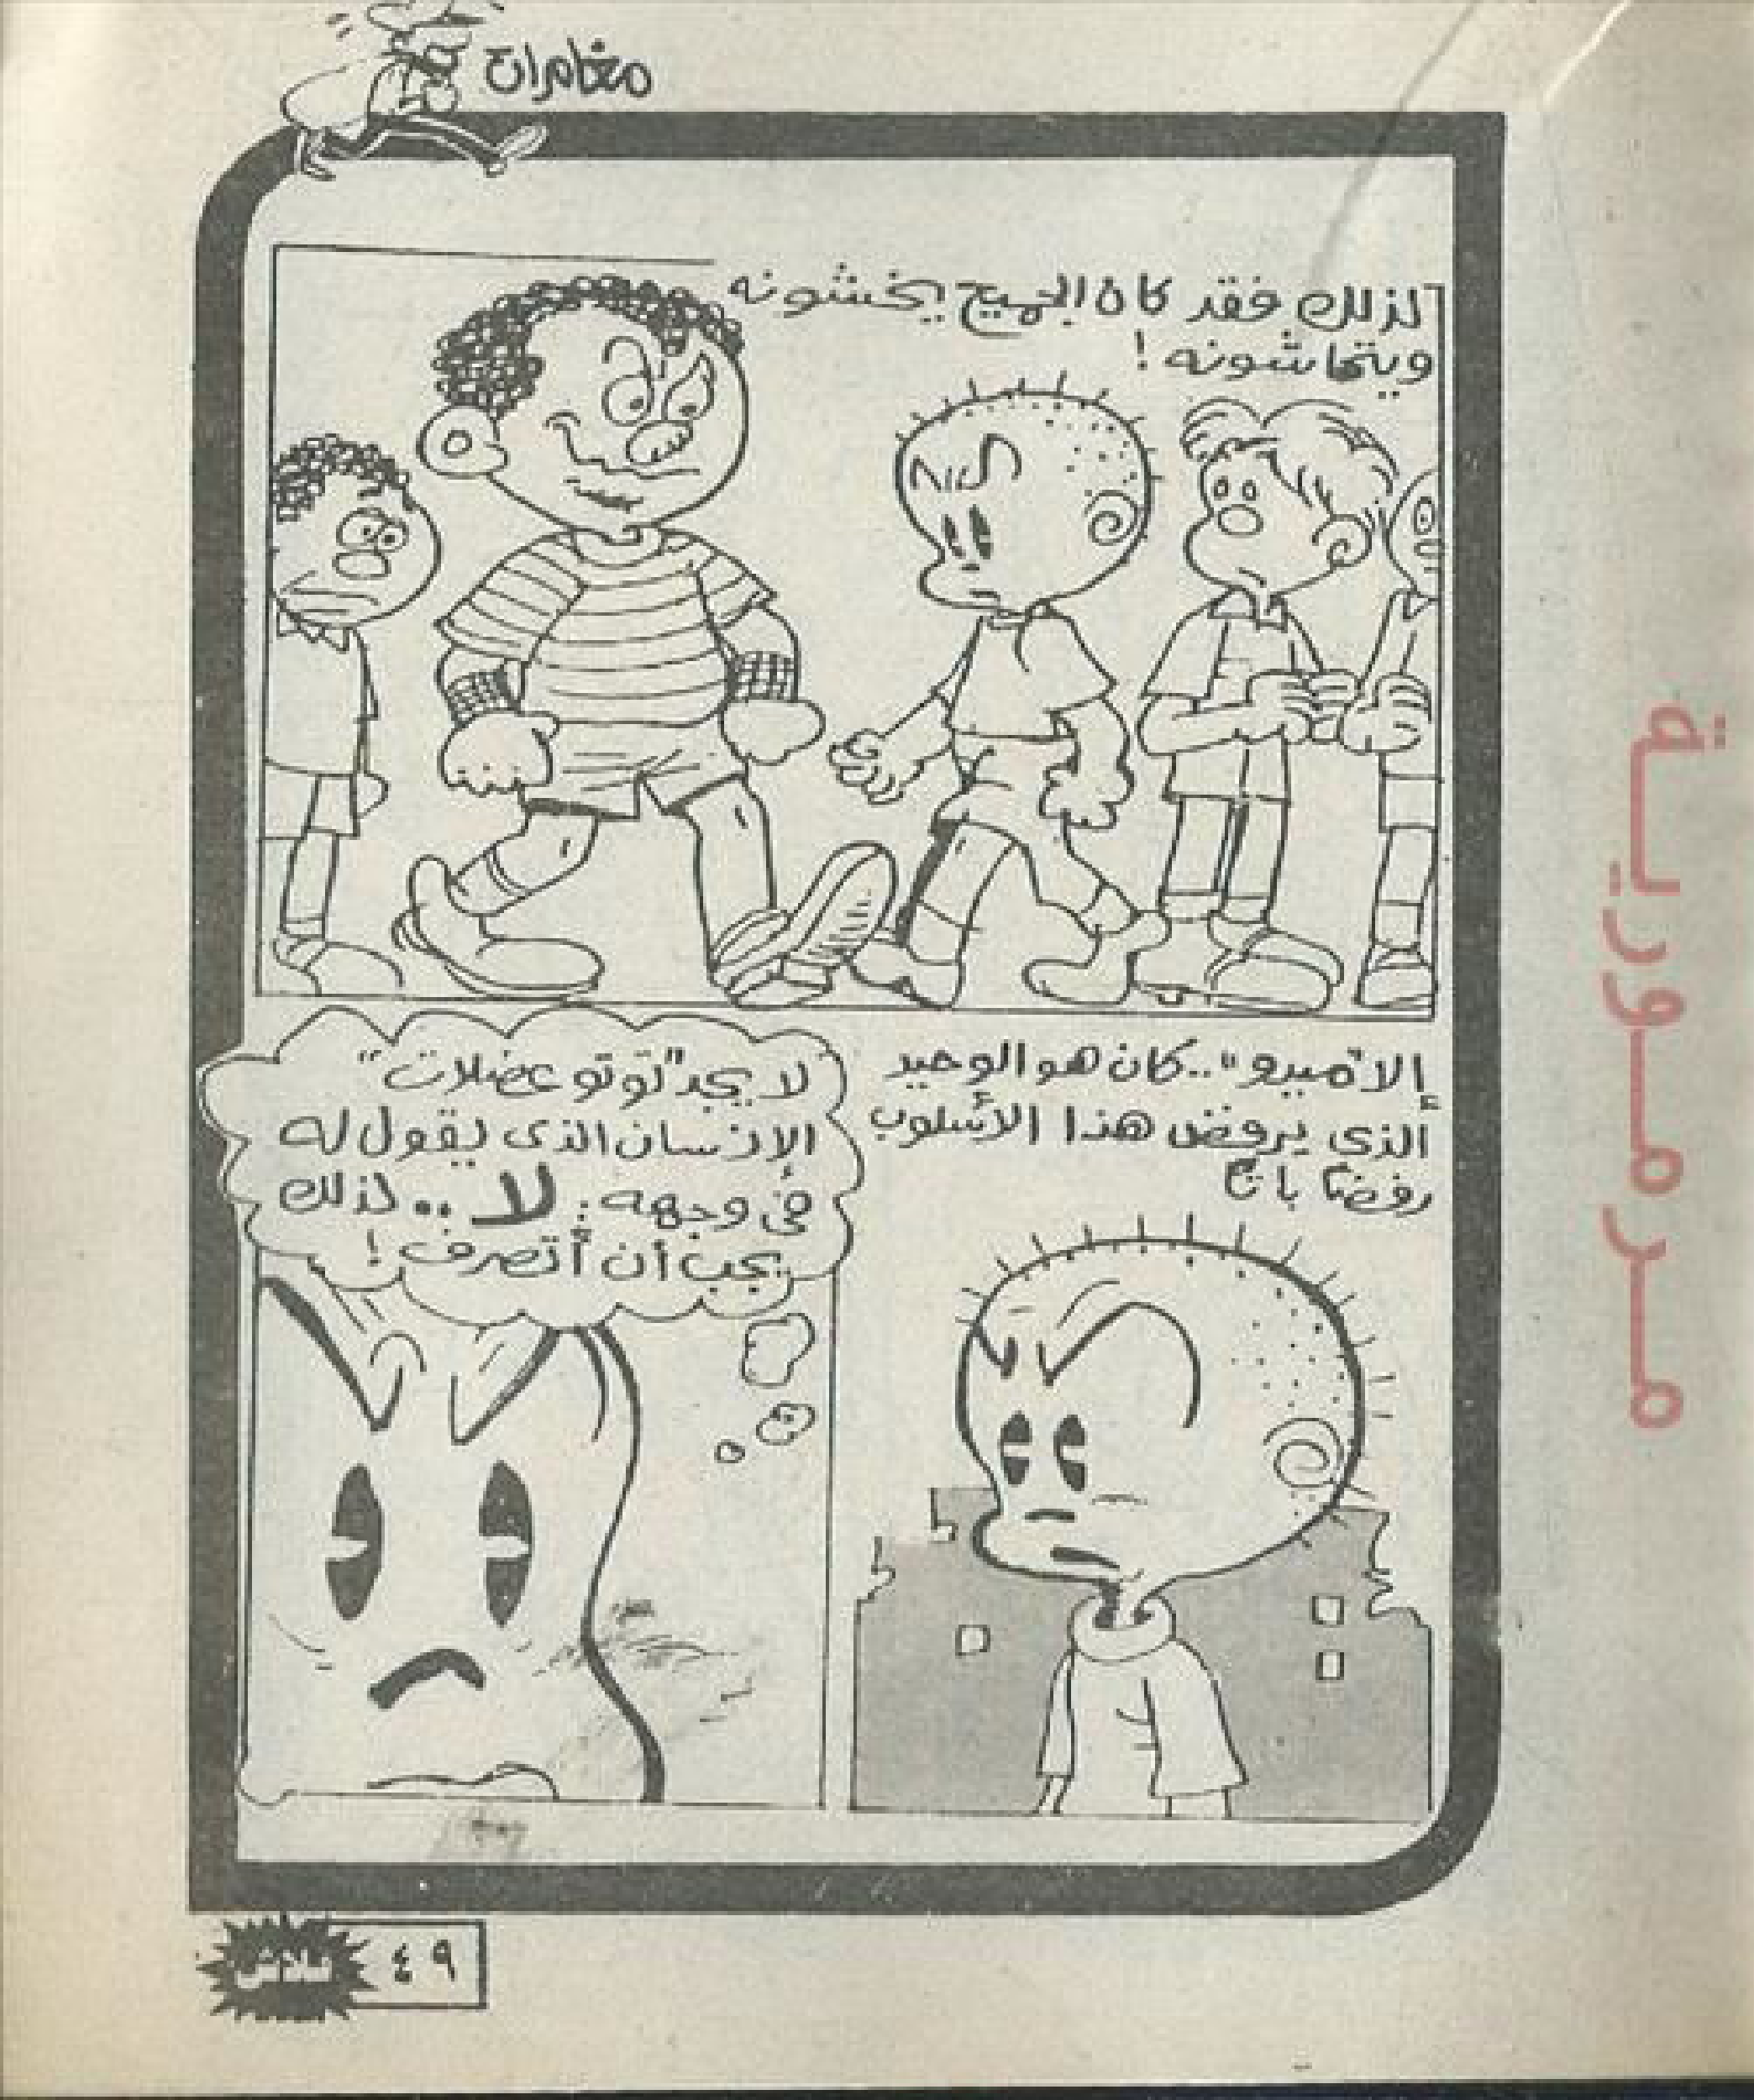 مغامرات
لذلك فقد كان الجميع يخشونه
ويتحاشونه !
إلا "ميدو" .. كان هو الوحيد
الذى يرفض هذا الأسلوب
رفضا باتا
لا يجد "توتو عضلات"
الإنسان الذى يقول له
فى وجهه : لا .. لذلك
يجب أن أتصرف !
٤٩
مرمورية